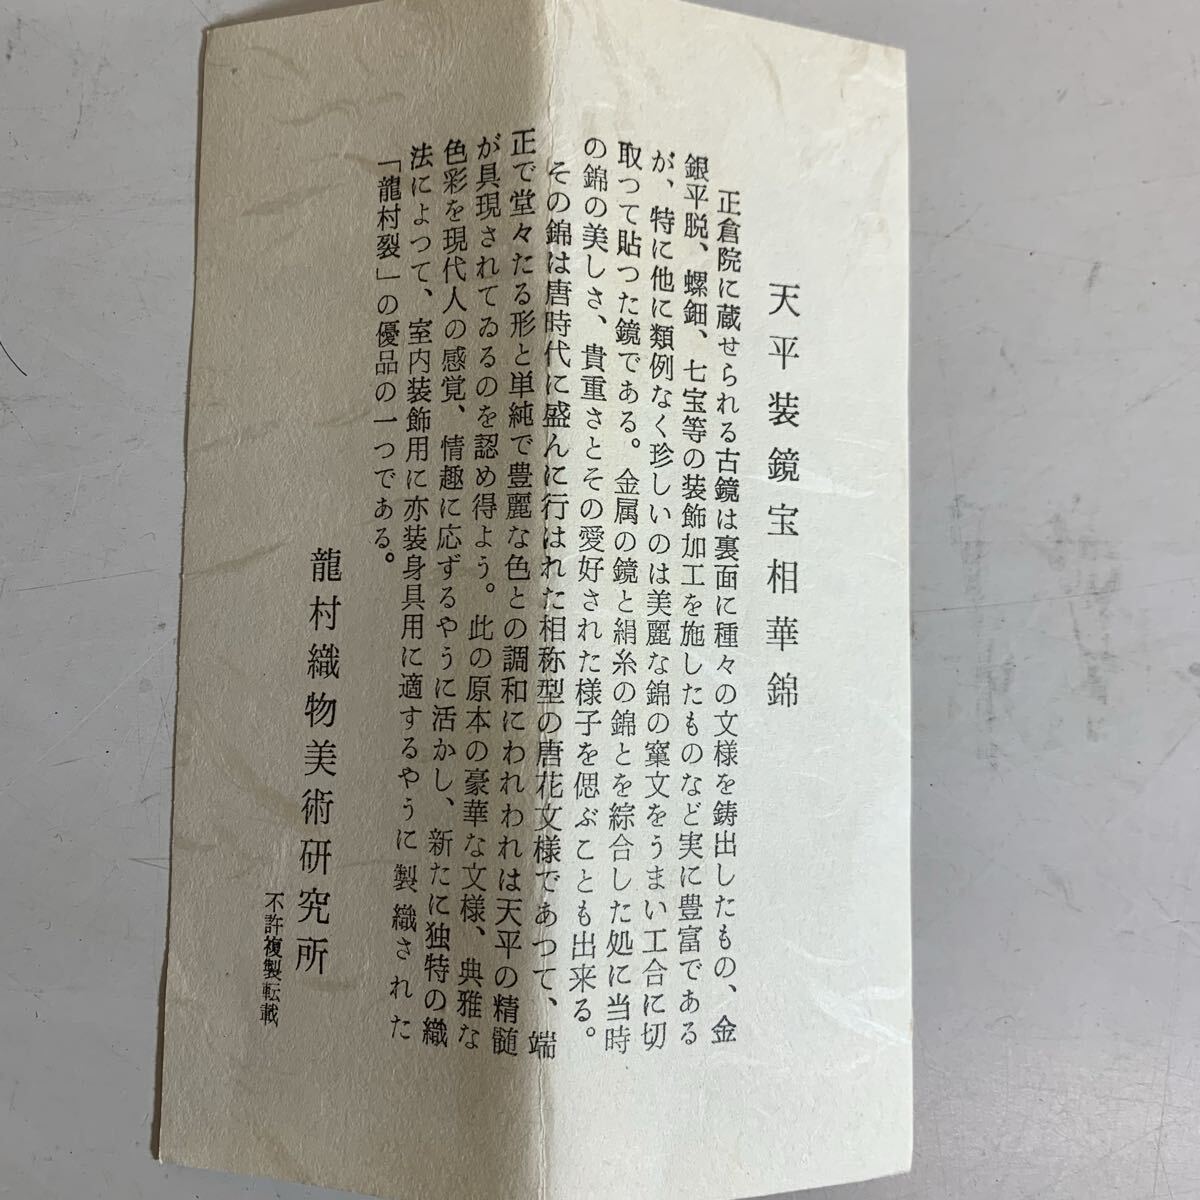 天平装鏡宝相華錦
正倉院に蔵せられる古鏡は裏面に種々の文様を鋳出したもの、金
銀平脱、螺鈿、七宝等の装飾加工を施したものなど実に豊富である
が、特に他に類例なく珍しいのは美麗な錦の窠文をうまい工合に切
取つて貼つた鏡である。金属の鏡と絹糸の錦とを綜合した処に当時
の錦の美しさ、貴重さとその愛好された様子を偲ぶことも出来る。
その錦は唐時代に盛んに行はれた相称型の唐花文様であつて、端
正で堂々たる形と単純で豊麗な色との調和にわれわれは天平の精髄
が具現されてゐるのを認め得よう。此の原本の豪華な文様、典雅な
色彩を現代人の感覚、情趣に応ずるやうに活かし、新たに独特の織
法によつて、室内装飾用に亦装身具用に適するやうに製織された
「龍村裂」の優品の一つである。
龍村織物美術研究所
不許複製転載